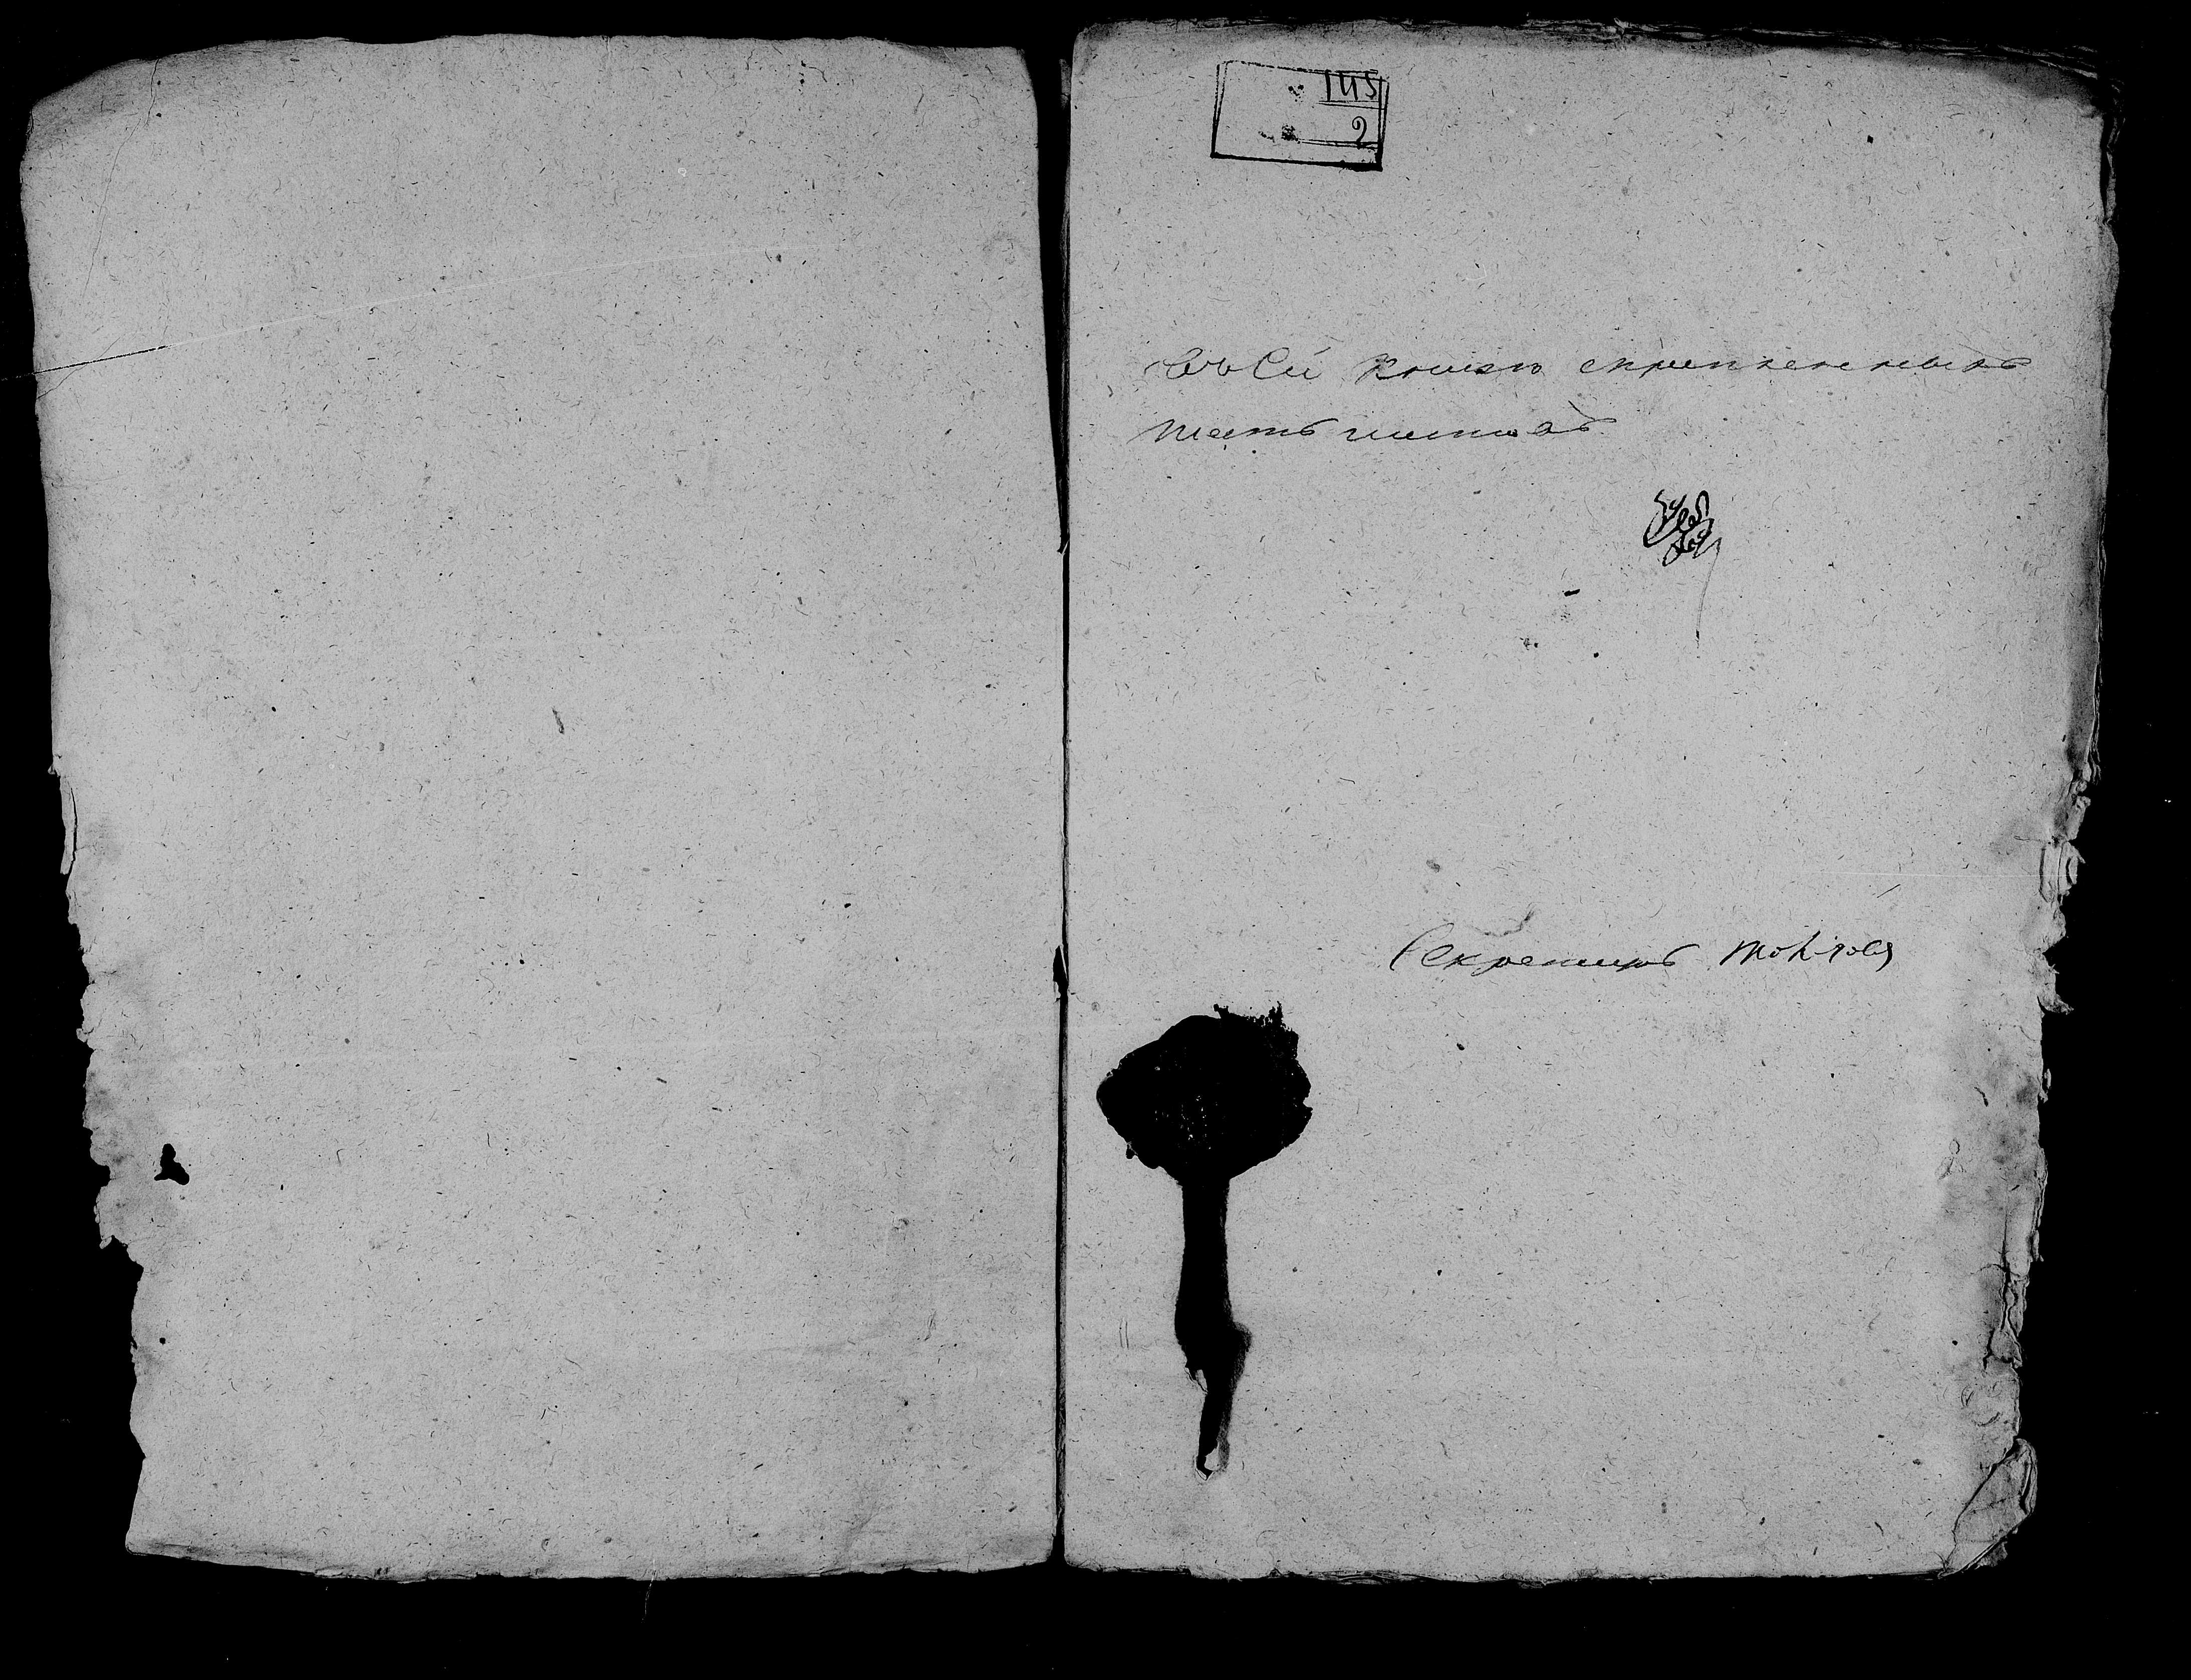 145
2
Въ Сей книги скрепленныхъ
шесть листовъ
Секретарь